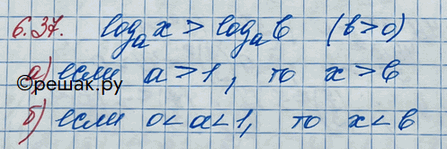 6.37. logₐ x > logₐ b (b>0)
а) если a>1, то x>b
©решак.ру
б) если 0<a<1, то x<b